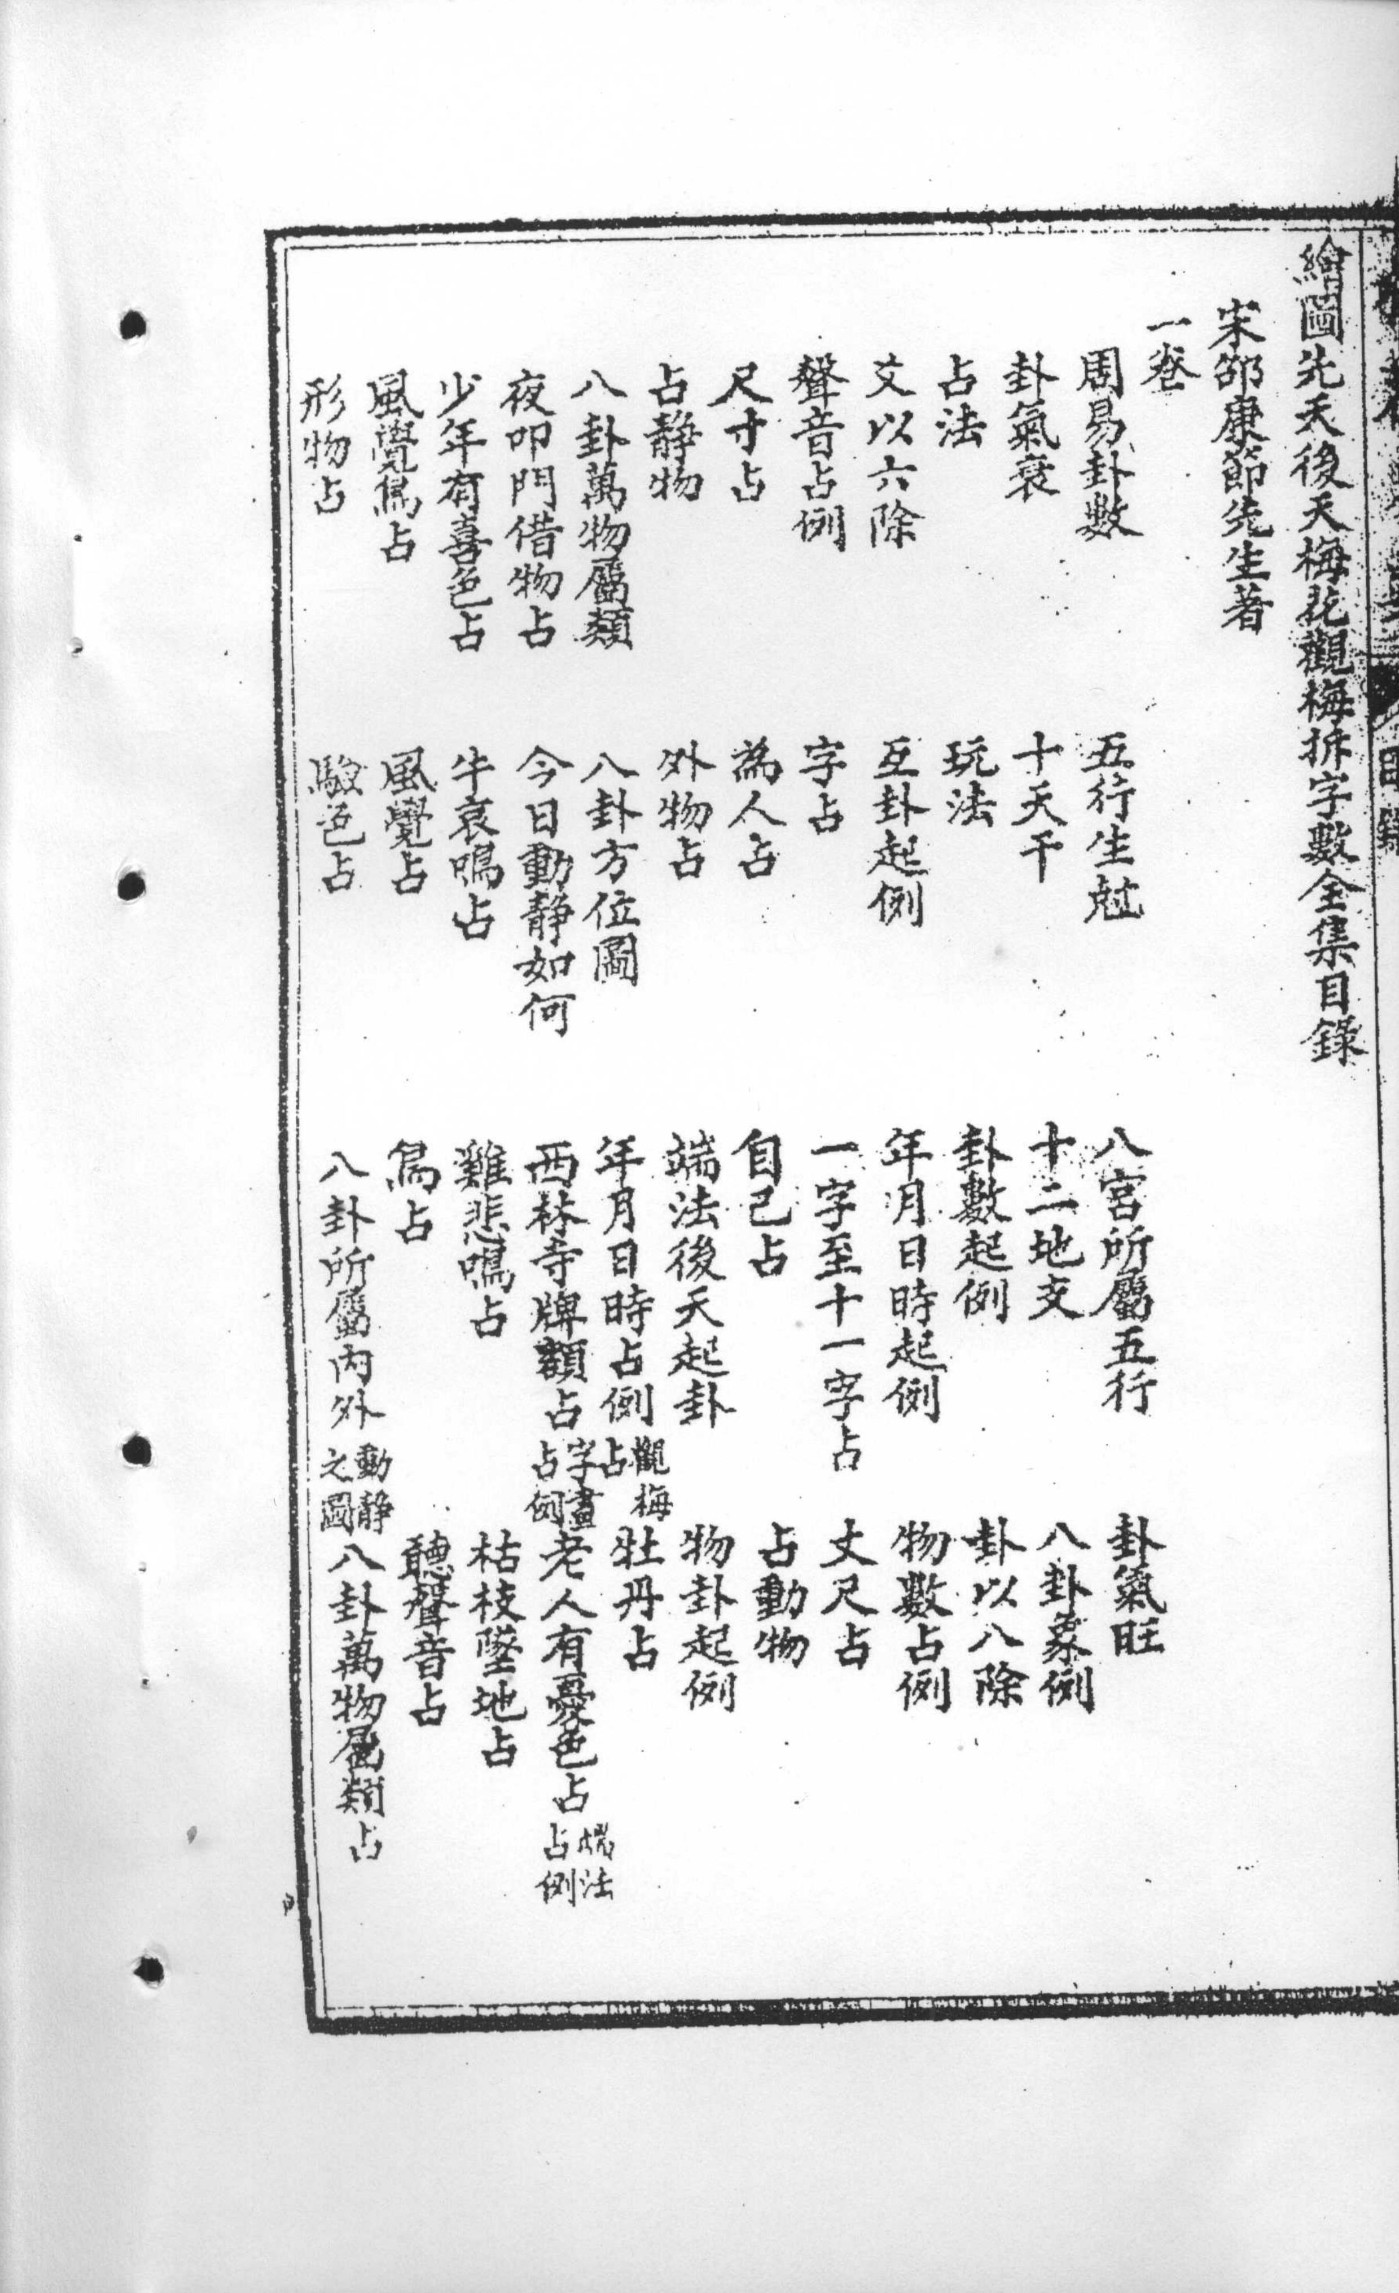 繪圖先天後天梅花觀梅拆字數全集目錄
宋邵康節先生著
一卷
周易卦數 五行生尅 八宮所屬五行 卦氣旺
卦氣衰 十天干 十二地支 八卦象例
占法 玩法 卦數起例 卦以八除
爻以六除 互卦起例 年月日時起例 物數占例
聲音占例 字占 一字至十一字占 丈尺占
尺寸占 為人占 自己占 占動物
占靜物 外物占 端法後天起卦 物卦起例
八卦萬物屬類 八卦方位圖 年月日時占例觀梅占 牡丹占
夜叩門借物占 今日動靜如何 西林寺牌額占字畫占例 老人有憂色占端法占例
少年有喜色占 牛哀鳴占 雞悲鳴占 枯枝墜地占
風覺鳥占 風覺占 鳥占 聽聲音占
形物占 驗色占 八卦所屬內外動靜之圖 八卦萬物屬類占
目錄